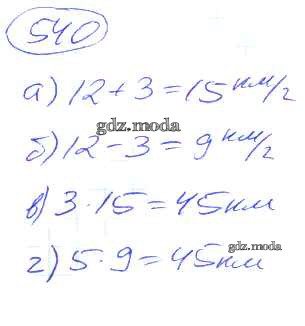 540
а) 12 + 3 = 15 км/г
gdz.moda
б) 12 - 3 = 9 км/г
в) 3 · 15 = 45 км
gdz.moda
г) 5 · 9 = 45 км